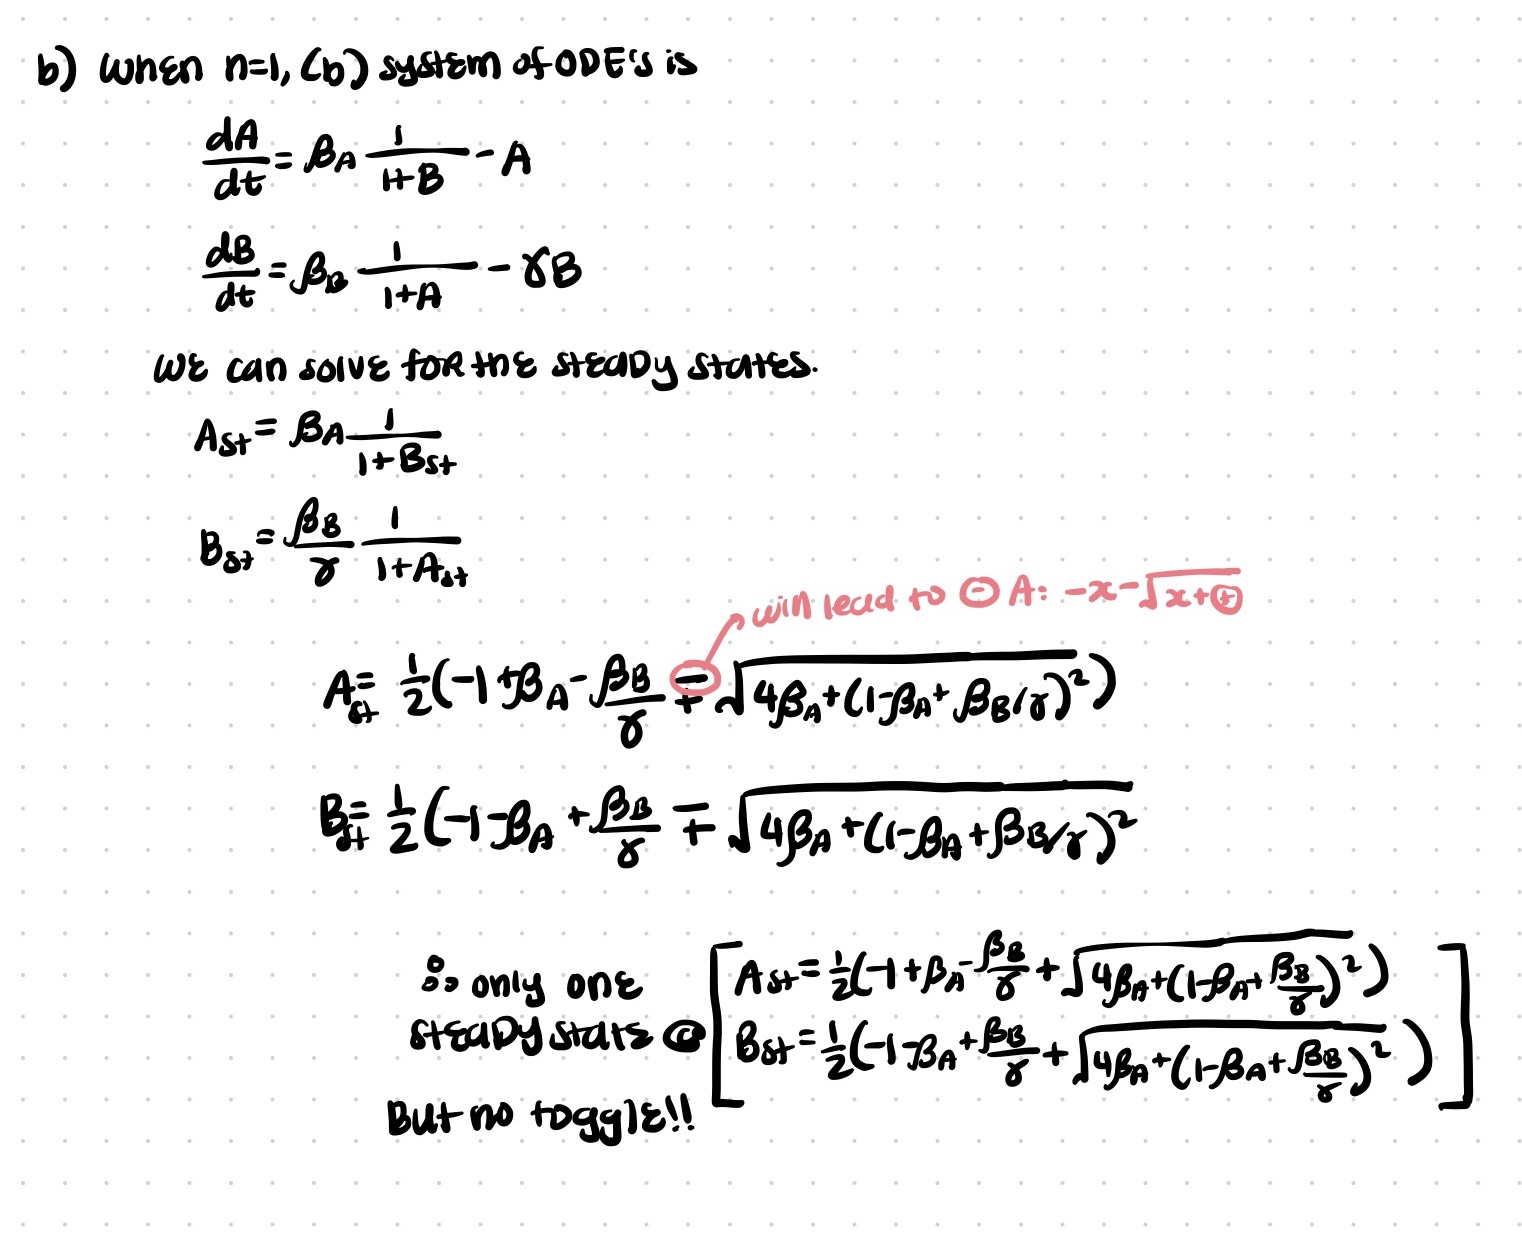 b) when n=1, (b) system of ODE's is
dA/dt = βA 1/(1+B) - A
dB/dt = βB 1/(1+A) - γB
we can solve for the steady states.
Ast = βA 1/(1+Bst)
Bst = βB/γ 1/(1+Ast)
will lead to ⊖ A: -x-√(x+⊕)
Ast = 1/2(-1+βA-βB/γ ∓ √(4βA+(1-βA+βB/γ)²))
Bst = 1/2(-1-βA+βB/γ ∓ √(4βA+(1-βA+βB/γ)²)
∴ only one steady state @ [Ast = 1/2(-1+βA-βB/γ + √(4βA+(1-βA+βB/γ)²))
Bst = 1/2(-1-βA+βB/γ + √(4βA+(1-βA+βB/γ)²))]
But no toggle!!